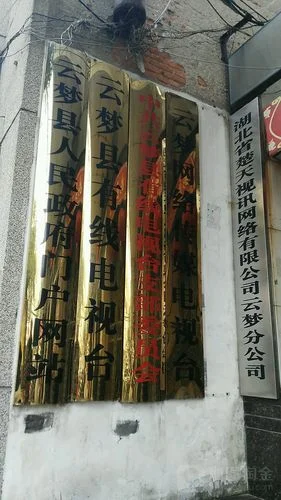 云梦县人民政府门户网站
云梦县有线电视台
云梦网络传媒电视台
湖北省楚天视讯网络有限公司云梦分公司